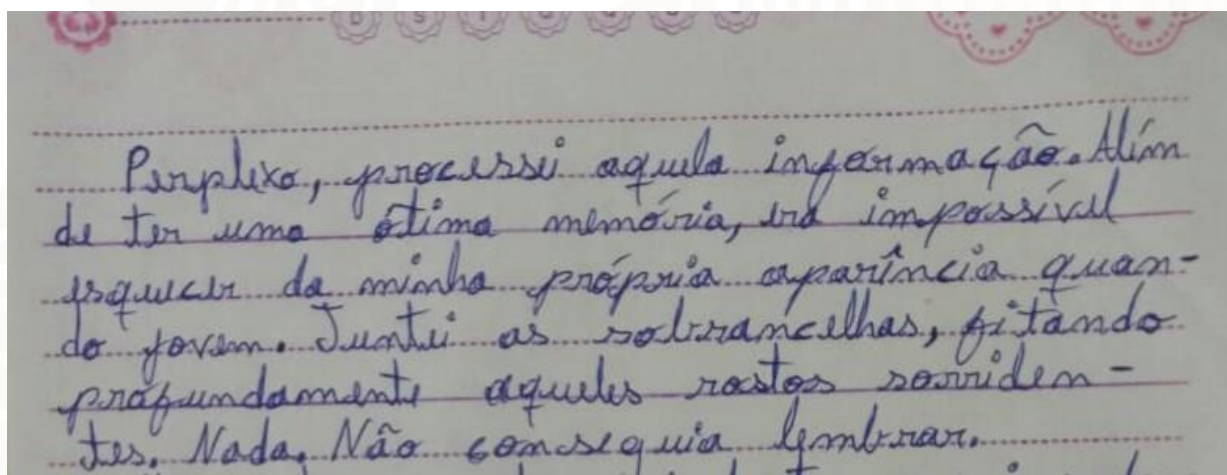 Perplexo, processei aquela informação. Além
de ter uma ótima memória, era impossível
esquecer da minha própria aparência quan-
do jovem. Juntei as sobrancelhas, fitando
profundamente aqueles rostos sorriden-
tes. Nada. Não conseguia lembrar.